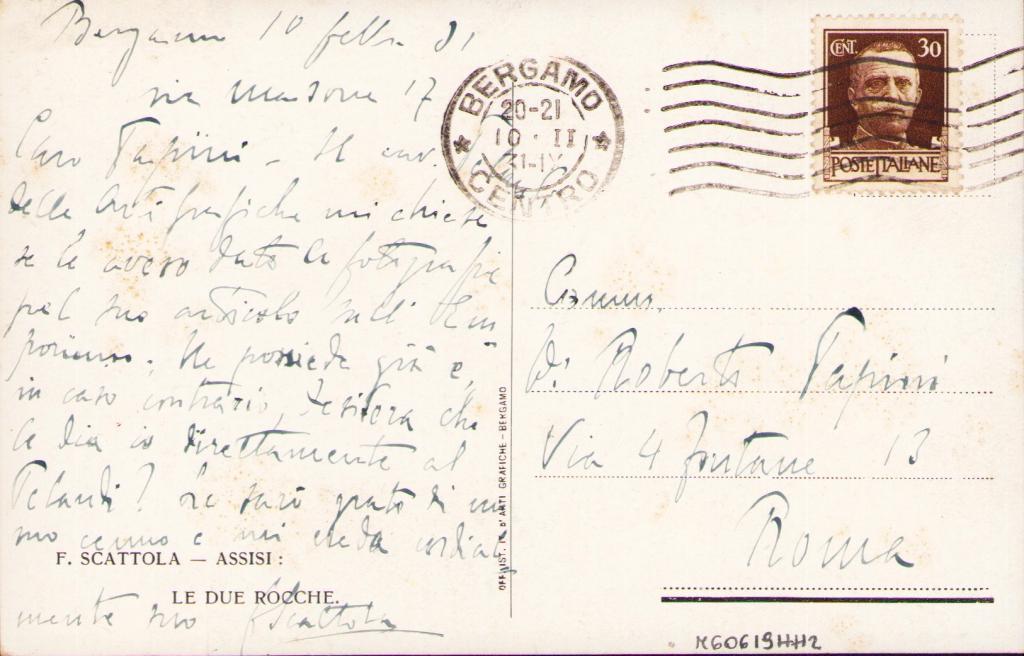 Bergamo 10 febb. 31
via Masone 17
Caro Papini - Il cav.
delle Arti grafiche mi chiese
se le avevo dato le fotografie
pel suo articolo sull' Em
porium. Ne possiede già e,
in caso contrario, desidera che
le dia io direttamente al
Pelandi? Le sarò grato di un
suo cenno e mi creda cordial
mente suo FScattola
F. SCATTOLA — ASSISI :
LE DUE ROCCHE.
OFF. IST. IT. D'ARTI GRAFICHE - BERGAMO
BERGAMO
20-21
10·II
31-IX
CENTRO
CENT. 30
POSTE ITALIANE
Comm.
Dr Roberto Papini
Via 4 fontane 13
Roma
M60619HH2